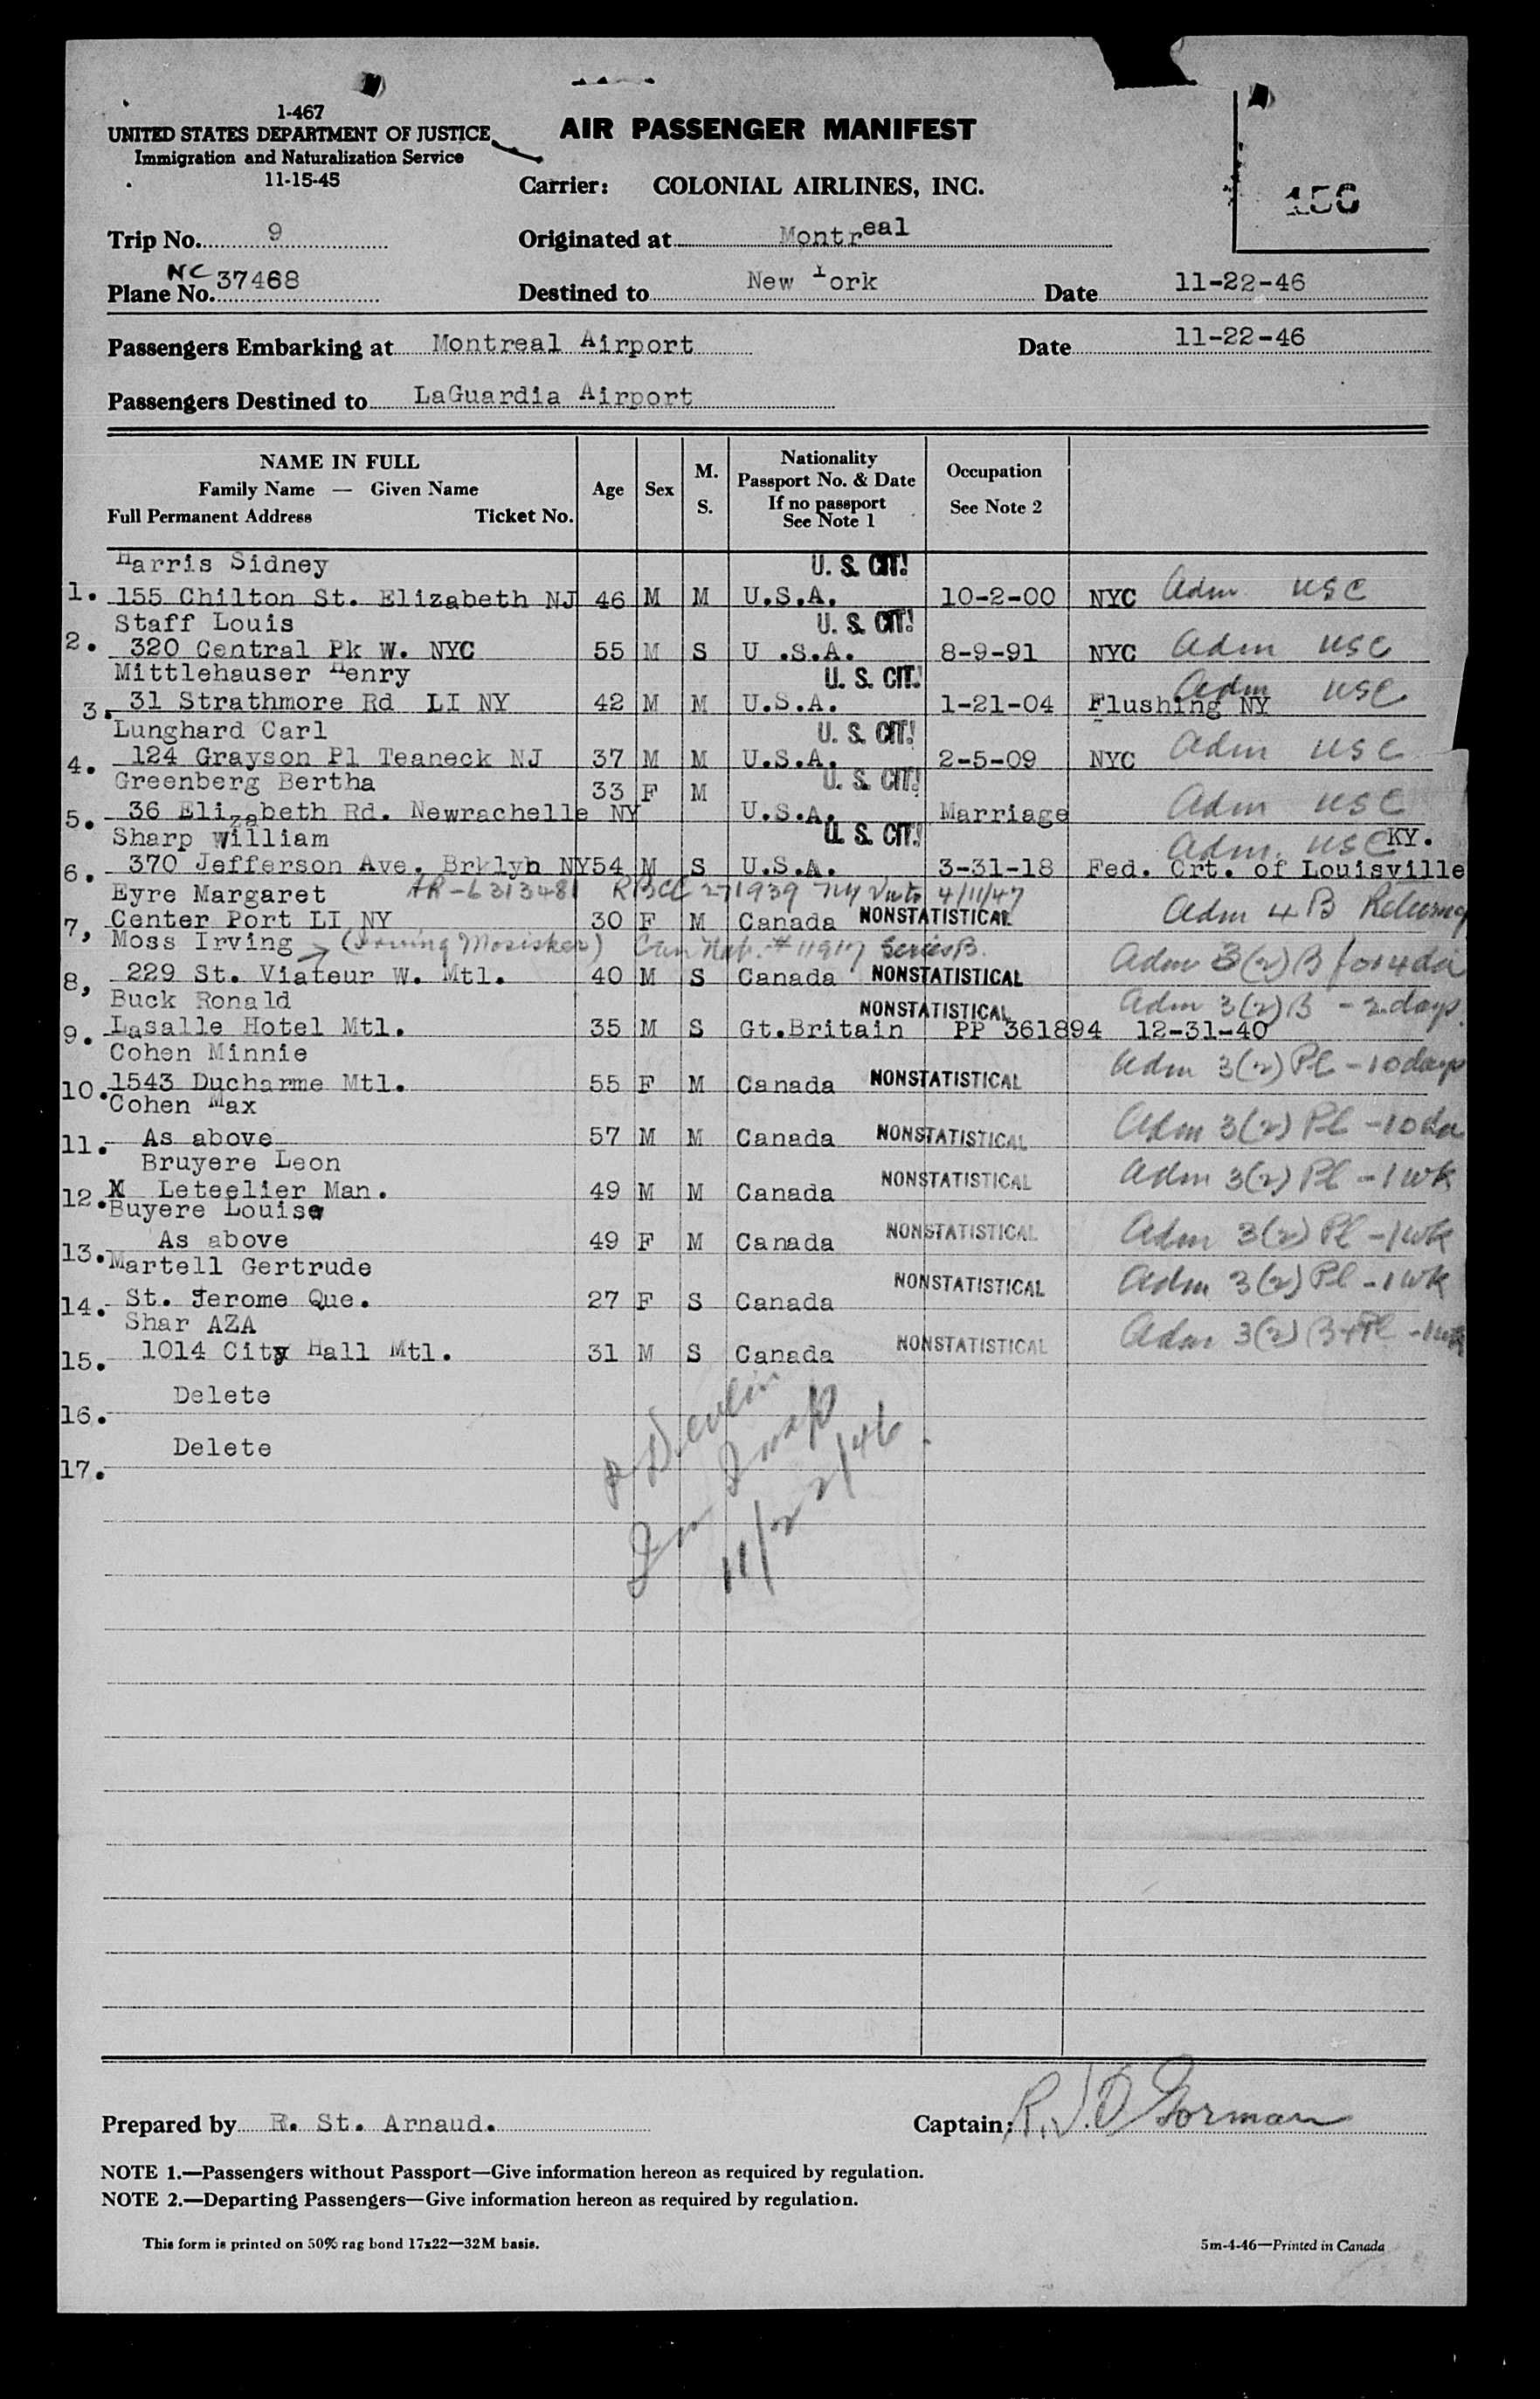 1-467
UNITED STATES DEPARTMENT OF JUSTICE
Immigration and Naturalization Service
11-15-45
AIR PASSENGER MANIFEST
Carrier: COLONIAL AIRLINES, INC.
Trip No. 9 Originated at Montreal
Plane No. NC 37468 Destined to New York Date 11-22-46
Passengers Embarking at Montreal Airport Date 11-22-46
Passengers Destined to LaGuardia Airport
NAME IN FULL
Family Name — Given Name
Full Permanent Address Ticket No.
Age Sex M. S.
Nationality
Passport No. & Date
If no passport
See Note 1
Occupation
See Note 2
Harris Sidney U. S. CIT!
1. 155 Chilton St. Elizabeth NJ 46 M M U.S.A. 10-2-00 NYC Adm USC
Staff Louis U. S. CIT!
2. 320 Central Pk W. NYC 55 M S U .S.A. 8-9-91 NYC Adm USC
Mittlehauser Henry U. S. CIT! Adm USC
3. 31 Strathmore Rd LI NY 42 M M U.S.A. 1-21-04 Flushing NY
Lunghard Carl U. S. CIT!
4. 124 Grayson Pl Teaneck NJ 37 M M U.S.A. 2-5-09 NYC Adm USC
Greenberg Bertha 33 F M U. S. CIT!
5. 36 Elizabeth Rd. Newrachelle NY U.S.A. Marriage Adm USC
Sharp William U. S. CIT! Adm. USC KY.
6. 370 Jefferson Ave. Brklyn NY 54 M S U.S.A. 3-31-18 Fed. Crt. of Louisville
Eyre Margaret AR-6313481 RBCC 271939 4/11/47
7, Center Port LI NY 30 F M Canada NONSTATISTICAL Adm 4 B Returning
Moss Irving (Irving Mosisker) Can Nat. # 11917 Series B.
8, 229 St. Viateur W. Mtl. 40 M S Canada NONSTATISTICAL Adm 3(2) B for 4 da
Buck Ronald NONSTATISTICAL Adm 3(2) B - 2 days.
9. Lasalle Hotel Mtl. 35 M S Gt.Britain PP 361894 12-31-40
Cohen Minnie Adm 3(2) Pl - 10 days
10. 1543 Ducharme Mtl. 55 F M Canada NONSTATISTICAL
Cohen Max
11. As above 57 M M Canada NONSTATISTICAL Adm 3(2) Pl - 10 da
Bruyere Leon
12. X Leteelier Man. 49 M M Canada NONSTATISTICAL Adm 3(2) Pl - 1 wk
Buyere Louise
13. As above 49 F M Canada NONSTATISTICAL Adm 3(2) Pl - 1 wk
Martell Gertrude
14. St. Jerome Que. 27 F S Canada NONSTATISTICAL Adm 3(2) Pl - 1 wk
Shar AZA
15. 1014 City Hall Mtl. 31 M S Canada NONSTATISTICAL Adm 3(2) B+Pl - 1 wk
16. Delete
17. Delete
Devlin
Imm Insp
11/22/46
Prepared by R. St. Arnaud. Captain: R.J. O'Gorman
NOTE 1.—Passengers without Passport—Give information hereon as required by regulation.
NOTE 2.—Departing Passengers—Give information hereon as required by regulation.
This form is printed on 50% rag bond 17x22—32M basis. 5m-4-46—Printed in Canada